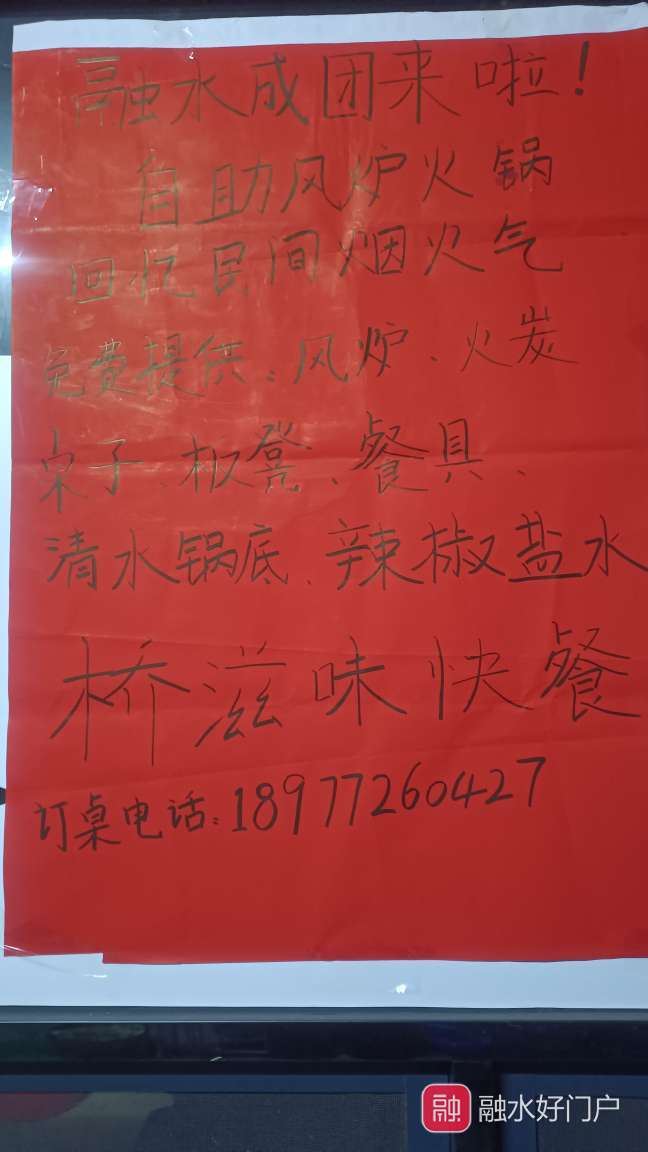 融水成团来啦！
自助风炉火锅
回忆民间烟火气
免费提供：风炉、火炭
桌子、板凳、餐具、
清水锅底、辣椒盐水
桥滋味快餐
订桌电话：18977260427
融 融水好门户